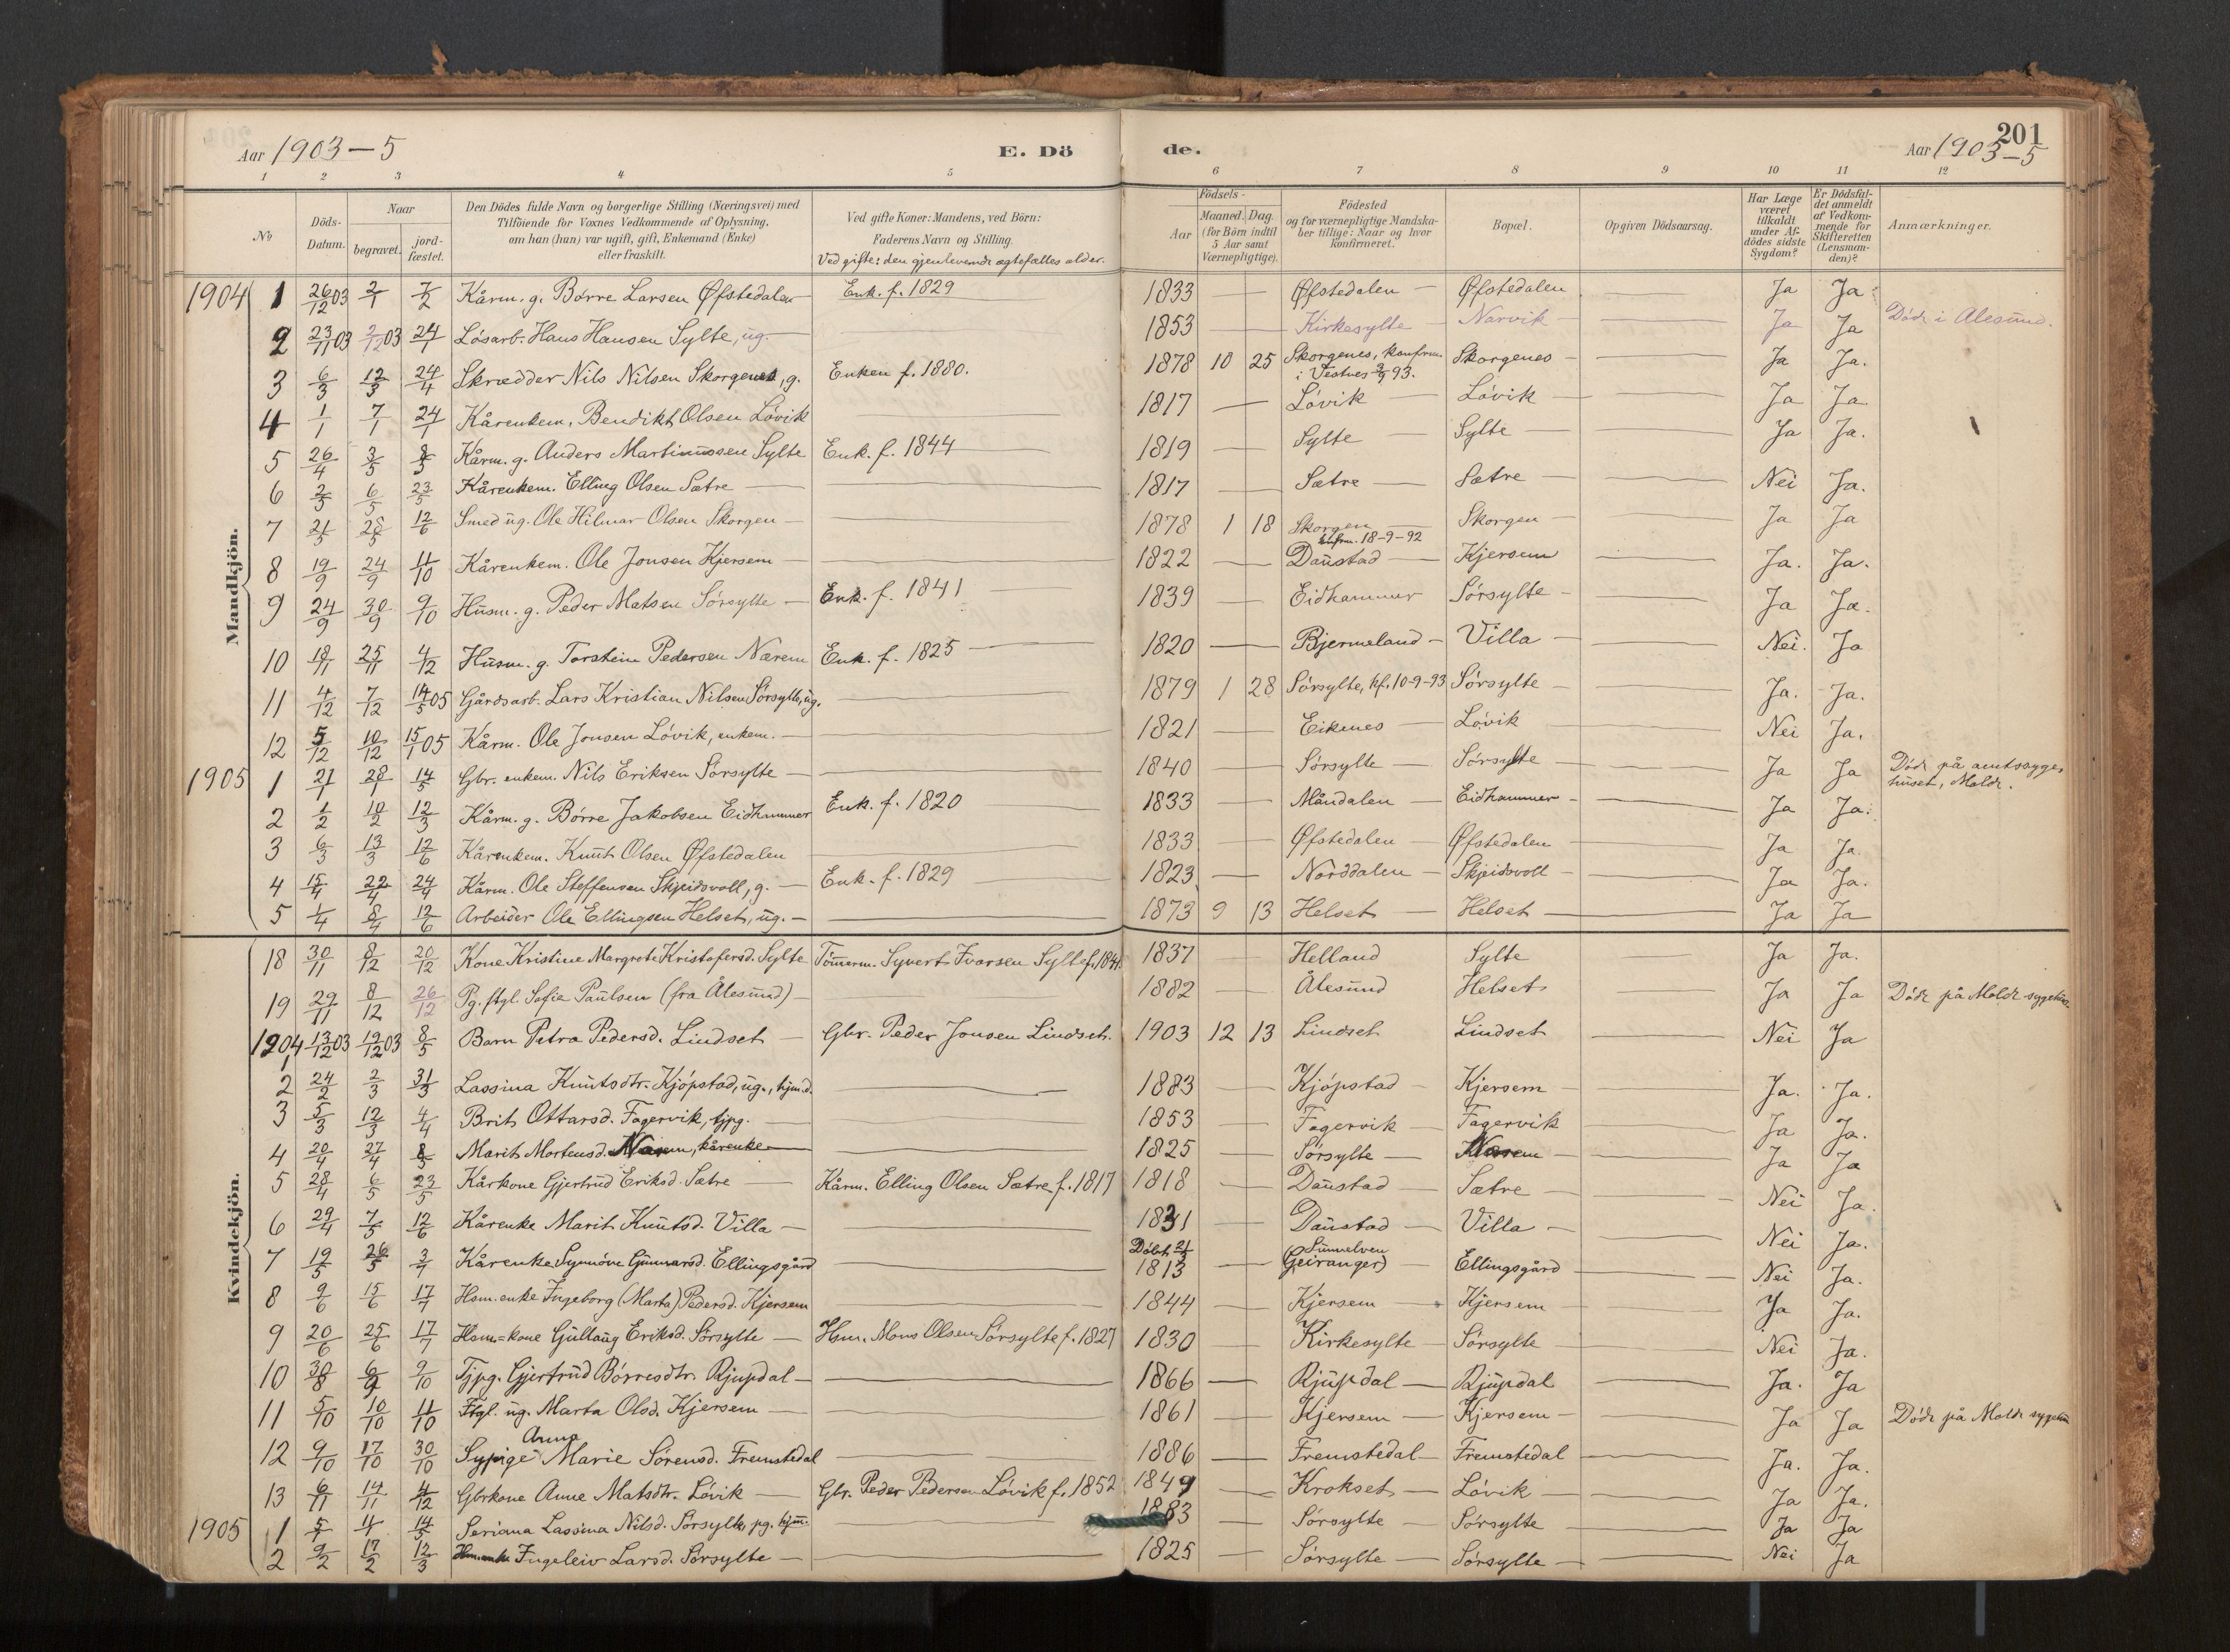 Aar 1903-5 E. Dö de. Aar 1903-5 201
1 2 3 4 5 6 7 8 9 10 11 12
№
Döds-Datum.
Naar begravet. jordfæstet.
Den Dödes fulde Navn og borgerlige Stilling (Næringsvei) med Tilföiende for Voxnes Vedkommende af Oplysning, om han (hun) var ugift, gift, Enkemand (Enke) eller fraskilt.
Ved gifte Koner: Mandens, ved Börn: Faderens Navn og Stilling.
Ved gifte: den gjenlevende ægtefælles alder.
Födsels- Aar Maaned. Dag. (for Börn indtil 5 Aar samt Værnepligtige).
Födested og for værnepligtige Mandskaber tillige: Naar og hvor konfirmeret.
Bopæl.
Opgiven Dödsaarsag.
Har Læge været tilkaldt under Afdödes sidste Sygdom?
Er Dödsfaldet anmeldt af Vedkommende for Skifteretten (Lensmanden)?
Anmærkninger.
Mandkjön.
1904 1 26/12 03 2/1 7/2 Kårm. g. Børre Larsen Øfstedalen Enk. f. 1829 1833 Øfstedalen Øfstedalen Ja Ja
2 23/11 03 2/12 03 24/1 Løsarb. Hans Hansen Sylte, ug. 1853 Kirkesylte Narvik Ja Ja Døde i Ålesund.
3 6/3 12/3 24/4 Skrædder Nils Nilsen Skorgenes, g. Enken f. 1880. 1878 10 25 Skorgenes, konfirm. i Vestnes 3/9 93. Skorgenes Ja Ja.
4 1/1 7/1 24/1 Kårenkem. Bendikt Olsen Løvik 1817 Løvik Løvik Ja Ja
5 26/4 3/5 8/5 Kårm. g. Anders Martinussen Sylte Enk. f. 1844 1819 Sylte Sylte Ja Ja.
6 2/5 6/5 23/5 Kårenkem. Elling Olsen Sætre 1817 Sætre Sætre Nei Ja.
7 21/5 28/5 12/6 Smed ug. Ole Hilmar Olsen Skorgen 1878 1 18 Skorgen konfirm. 18-9-92 Skorgen Ja Ja
8 19/9 24/9 11/10 Kårenkem. Ole Jonsen Kjersem 1822 Daustad Kjersem Ja. Ja.
9 24/9 30/9 9/10 Husm. g. Peder Matsen Sørsylte Enk. f. 1841 1839 Eidhammer Sørsylte Ja Ja.
10 18/11 25/11 4/12 Husm. g. Torstein Pedersen Nærem Enk. f. 1825 1820 Bjermeland Villa Nei. Ja
11 4/12 7/12 14/5 05 Gårdsarb. Lars Kristian Nilsen Sørsylte, ug. 1879 1 28 Sørsylte, kf. 10-9-93 Sørsylte Ja. Ja.
12 5/12 10/12 15/1 05 Kårm. Ole Jonsen Løvik, enkem. 1821 Eikenes Løvik Nei Ja.
1905 1 21/1 28/1 14/5 Gbr. enkem. Nils Eriksen Sørsylte 1840 Sørsylte Sørsylte Ja Ja Døde på amtssygehuset, Molde.
2 1/2 10/2 12/3 Kårm. g. Børre Jakobsen Eidhammer Enk. f. 1820 1833 Måndalen Eidhammer Ja Ja.
3 6/3 13/3 12/6 Kårenkem. Knut Olsen Øfstedalen 1833 Øfstedalen Øfstedalen Ja Ja.
4 15/4 22/4 24/4 Kårm. Ole Steffensen Skjeidsvoll, g. Enk. f. 1829 1823 Norddalen Skjeidsvoll Ja Ja.
5 1/4 8/4 12/6 Arbeider Ole Ellingsen Helset, ug. 1873 9 13 Helset Helset Ja Ja
Kvindekjön.
18 30/11 8/12 20/12 Kone Kristine Margrete Kristofersd. Sylte Tømerm. Syvert Ivarsen Sylte f. 1841 1837 Helland Sylte Ja Ja.
19 29/11 8/12 26/12 Pg. ftgl. Sofie Paulsen (fra Ålesund) 1882 Ålesund Helset Ja Ja Døde på Molde sygehus
1904 1 13/12 03 19/12 03 8/5 Barn Petra Pedersd. Lindset Gbr. Peder Jonsen Lindset. 1903 12 13 Lindset Lindset Nei Ja
2 24/2 2/3 31/3 Lassina Knutsdtr. Kjøpstad, ug., hjm.d. 1883 Kjøpstad Kjersem Ja. Ja.
3 5/3 12/3 4/4 Brit Ottarsd. Fagervik, tjpg. 1853 Fagervik Fagervik Ja Ja.
4 20/4 27/4 8/5 Marit Mortensd. Nærem, kårenke 1825 Sørsylte Nærem Ja Ja
5 28/4 6/5 23/5 Kårkone Gjertrud Eriksd. Sætre Kårm. Elling Olsen Sætre f. 1817 1818 Daustad Sætre Nei Ja.
6 29/4 7/5 12/6 Kårenke Marit Knutsd. Villa 1831 Daustad Villa Nei Ja.
7 19/5 26/5 3/7 Kårenke Synnøve Gunnarsd. Ellingsgård Døbt 21/3 1813 Sunnelven (Geiranger) Ellingsgård Nei Ja.
8 9/6 15/6 17/7 Hsm. enke Ingeborg (Marta) Pedersd. Kjersem 1844 Kjersem Kjersem Ja Ja.
9 20/6 25/6 17/7 Hsm=kone Gullaug Eriksd. Sørsylte Hsm. Mons Olsen Sørsylte f. 1827 1830 Kirkesylte Sørsylte Nei Ja.
10 30/8 6/9 9/10 Tjpg. Gjertrud Børresdtr. Rjupdal 1866 Rjupdal Rjupdal Ja. Ja
11 5/10 10/10 11/10 Ftgl. ug. Marta Olsd. Kjersem 1861 Kjersem Kjersem Ja Ja Døde på Molde sygehus
12 9/10 17/10 30/10 Sypige Anna Marie Sørensd. Fremstedal 1886 Fremstedal Fremstedal Ja. Ja.
13 6/11 14/11 4/12 Gbrkone Anne Matsdtr. Løvik Gbr. Peder Pedersen Løvik f. 1852 1849 Krokset Løvik Ja Ja.
1905 1 5/1 11/1 14/5 Seriana Lassina Nilsd. Sørsylte, pg. hjm. 1883 Sørsylte Sørsylte Ja Ja
2 9/2 17/2 12/3 Hsm.enke Ingeleiv Larsd. Sørsylte 1825 Sørsylte Sørsylte Nei Ja